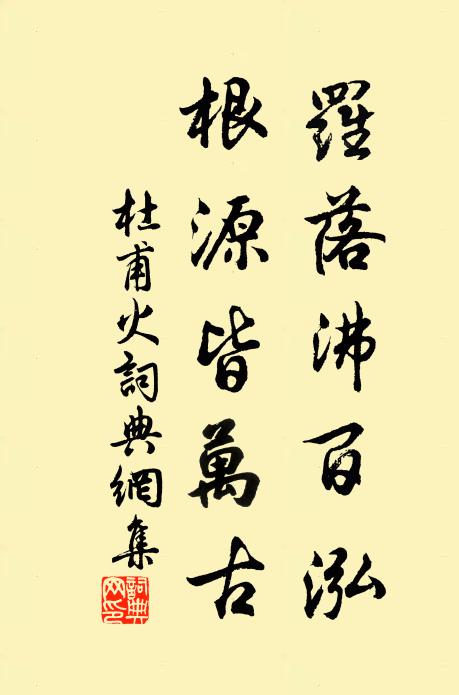 羅落沸百泓
根源皆萬古
杜甫火詞典網集
詞典網印